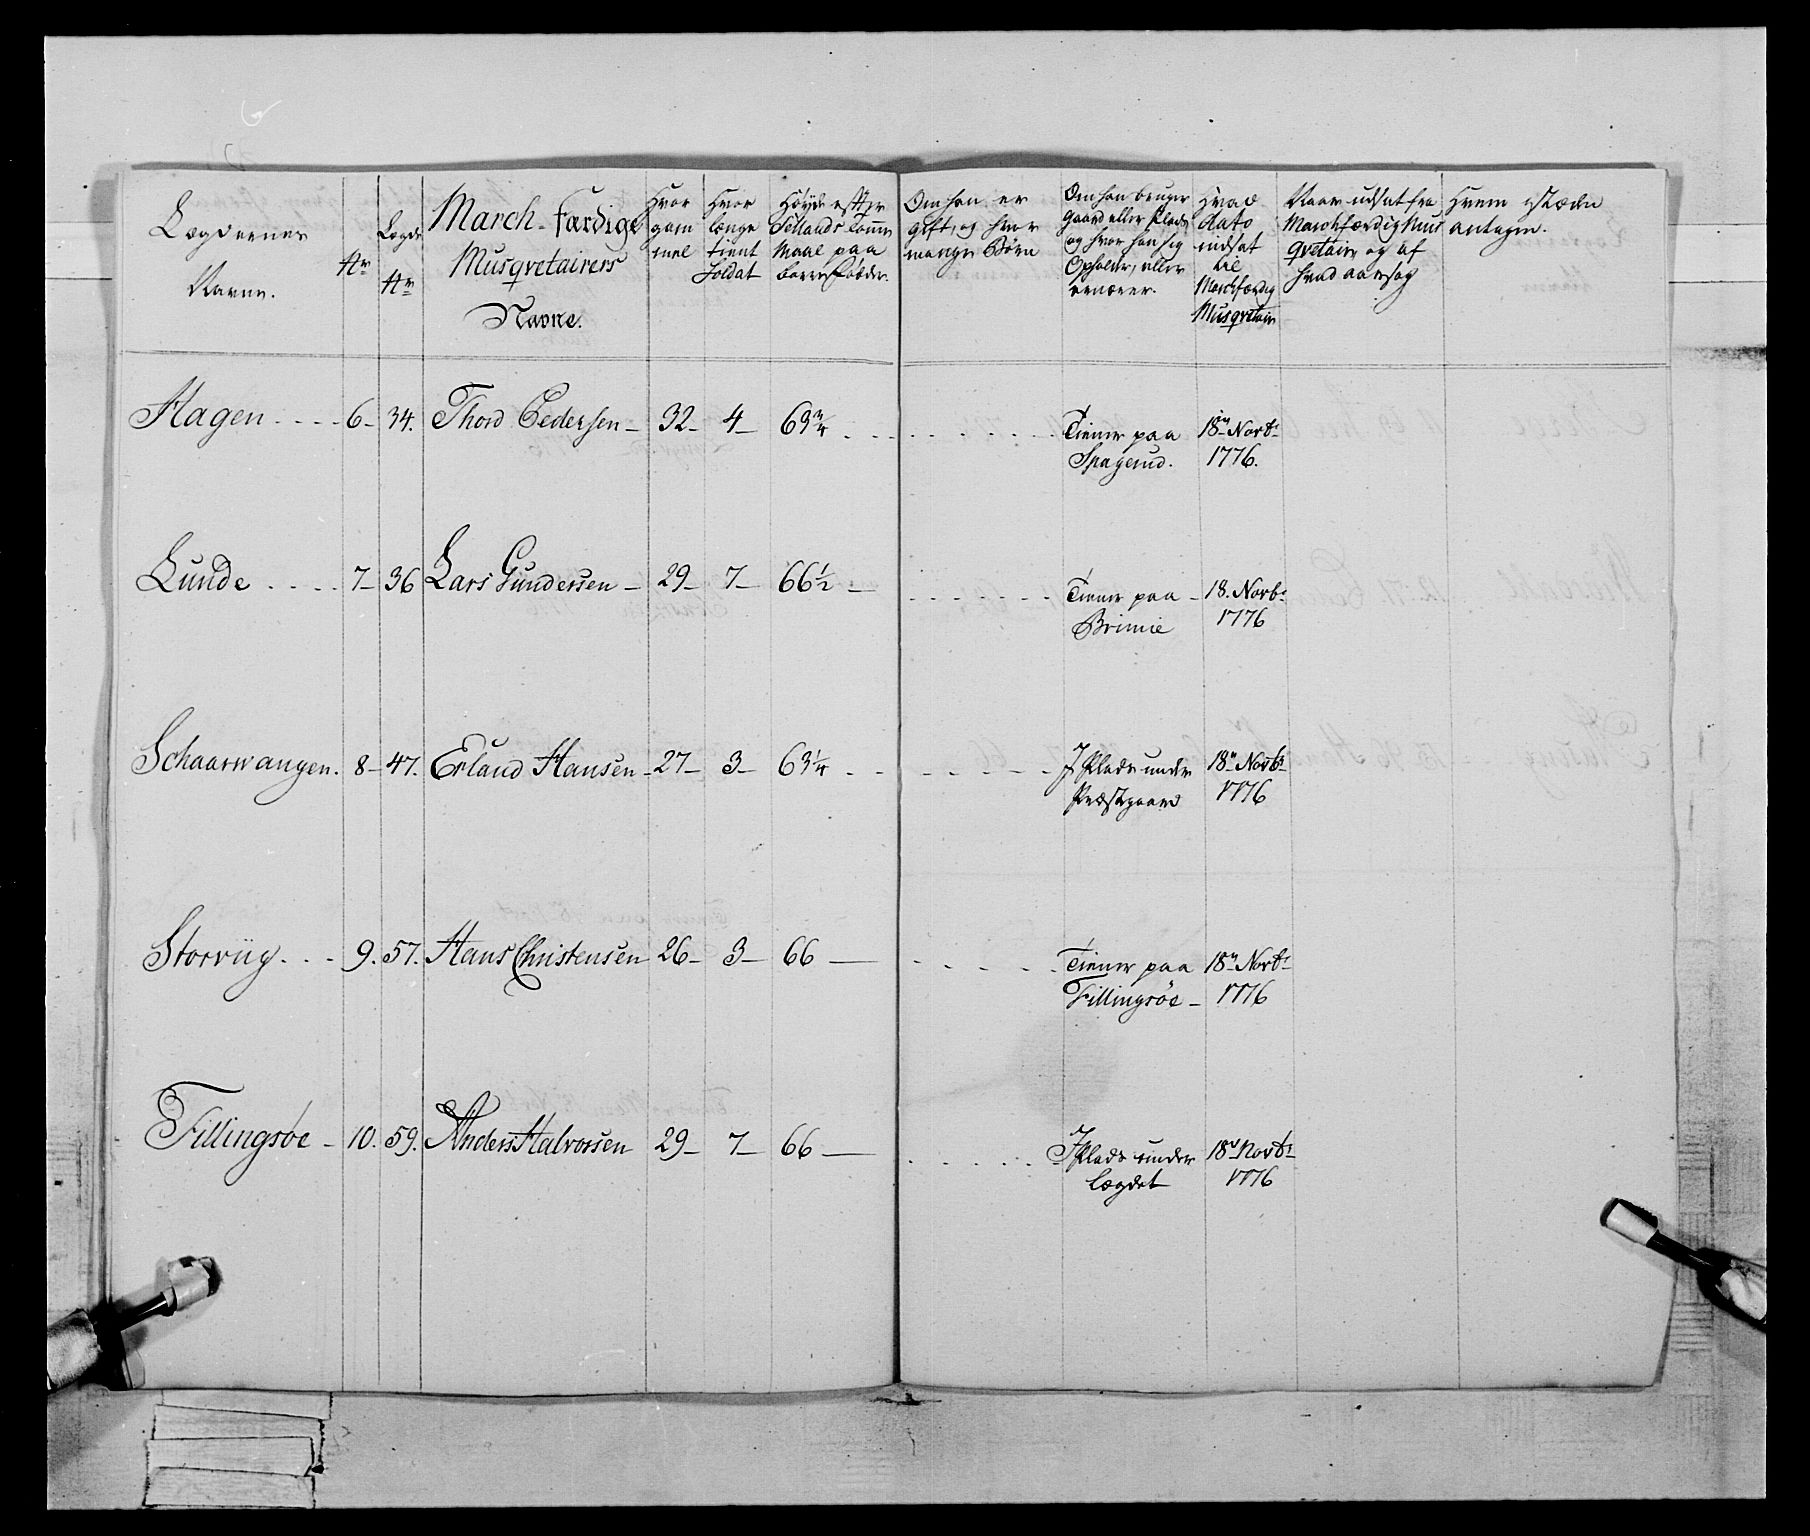 Lægdernes
Navne.
Nr
Lægds
Nr
March-færdige
Musqvetairers
Navne.
Hvor
gam
mel
Hvor
længe
tient
Soldat
Høyde efter
Sellands Tomme
Maal paa
barre Fødder.
Om han er
gift, og hvor
mange Børn
Om han bruger
Gaard eller Plads
og hvor han sig
Opholder, eller
ernærer.
Hvad
dato
indsat
til
Marchfærdig
Musqvetair
Naar udsat fra
Marchfærdig Mus
qvetair og af
hvad aarsag
Hvem i Stæden
antagen.
Hagen .... 6- 34. Thord Pedersen- 32- 4- 63 3/4 . . . . . . . . Tiener paa 18de Novbr
Spagerud. 1776.
Lunde .... 7- 36 Lars Gundersen- 29- 7- 66 1/2 — . . . . . . Tiener paa - 18. Novbr
Brimie 1776
Schaarwangen. 8- 47. Erland Hansen- 27- 3- 63 1/4 . . . . . . . . I Plads under 18de Novbr
Præstgaard 1776
Storviig . . . 9. 57. Hans Christensen 26- 3- 66 — . . . . . Tiener paa 18de Novbr
Fillingsøe- 1776
Fillingsøe- 10. 59. Anders Halvorsen 29- 7- 66 — . . . . . I Plads under 18de Novbr
Lægdet 1776